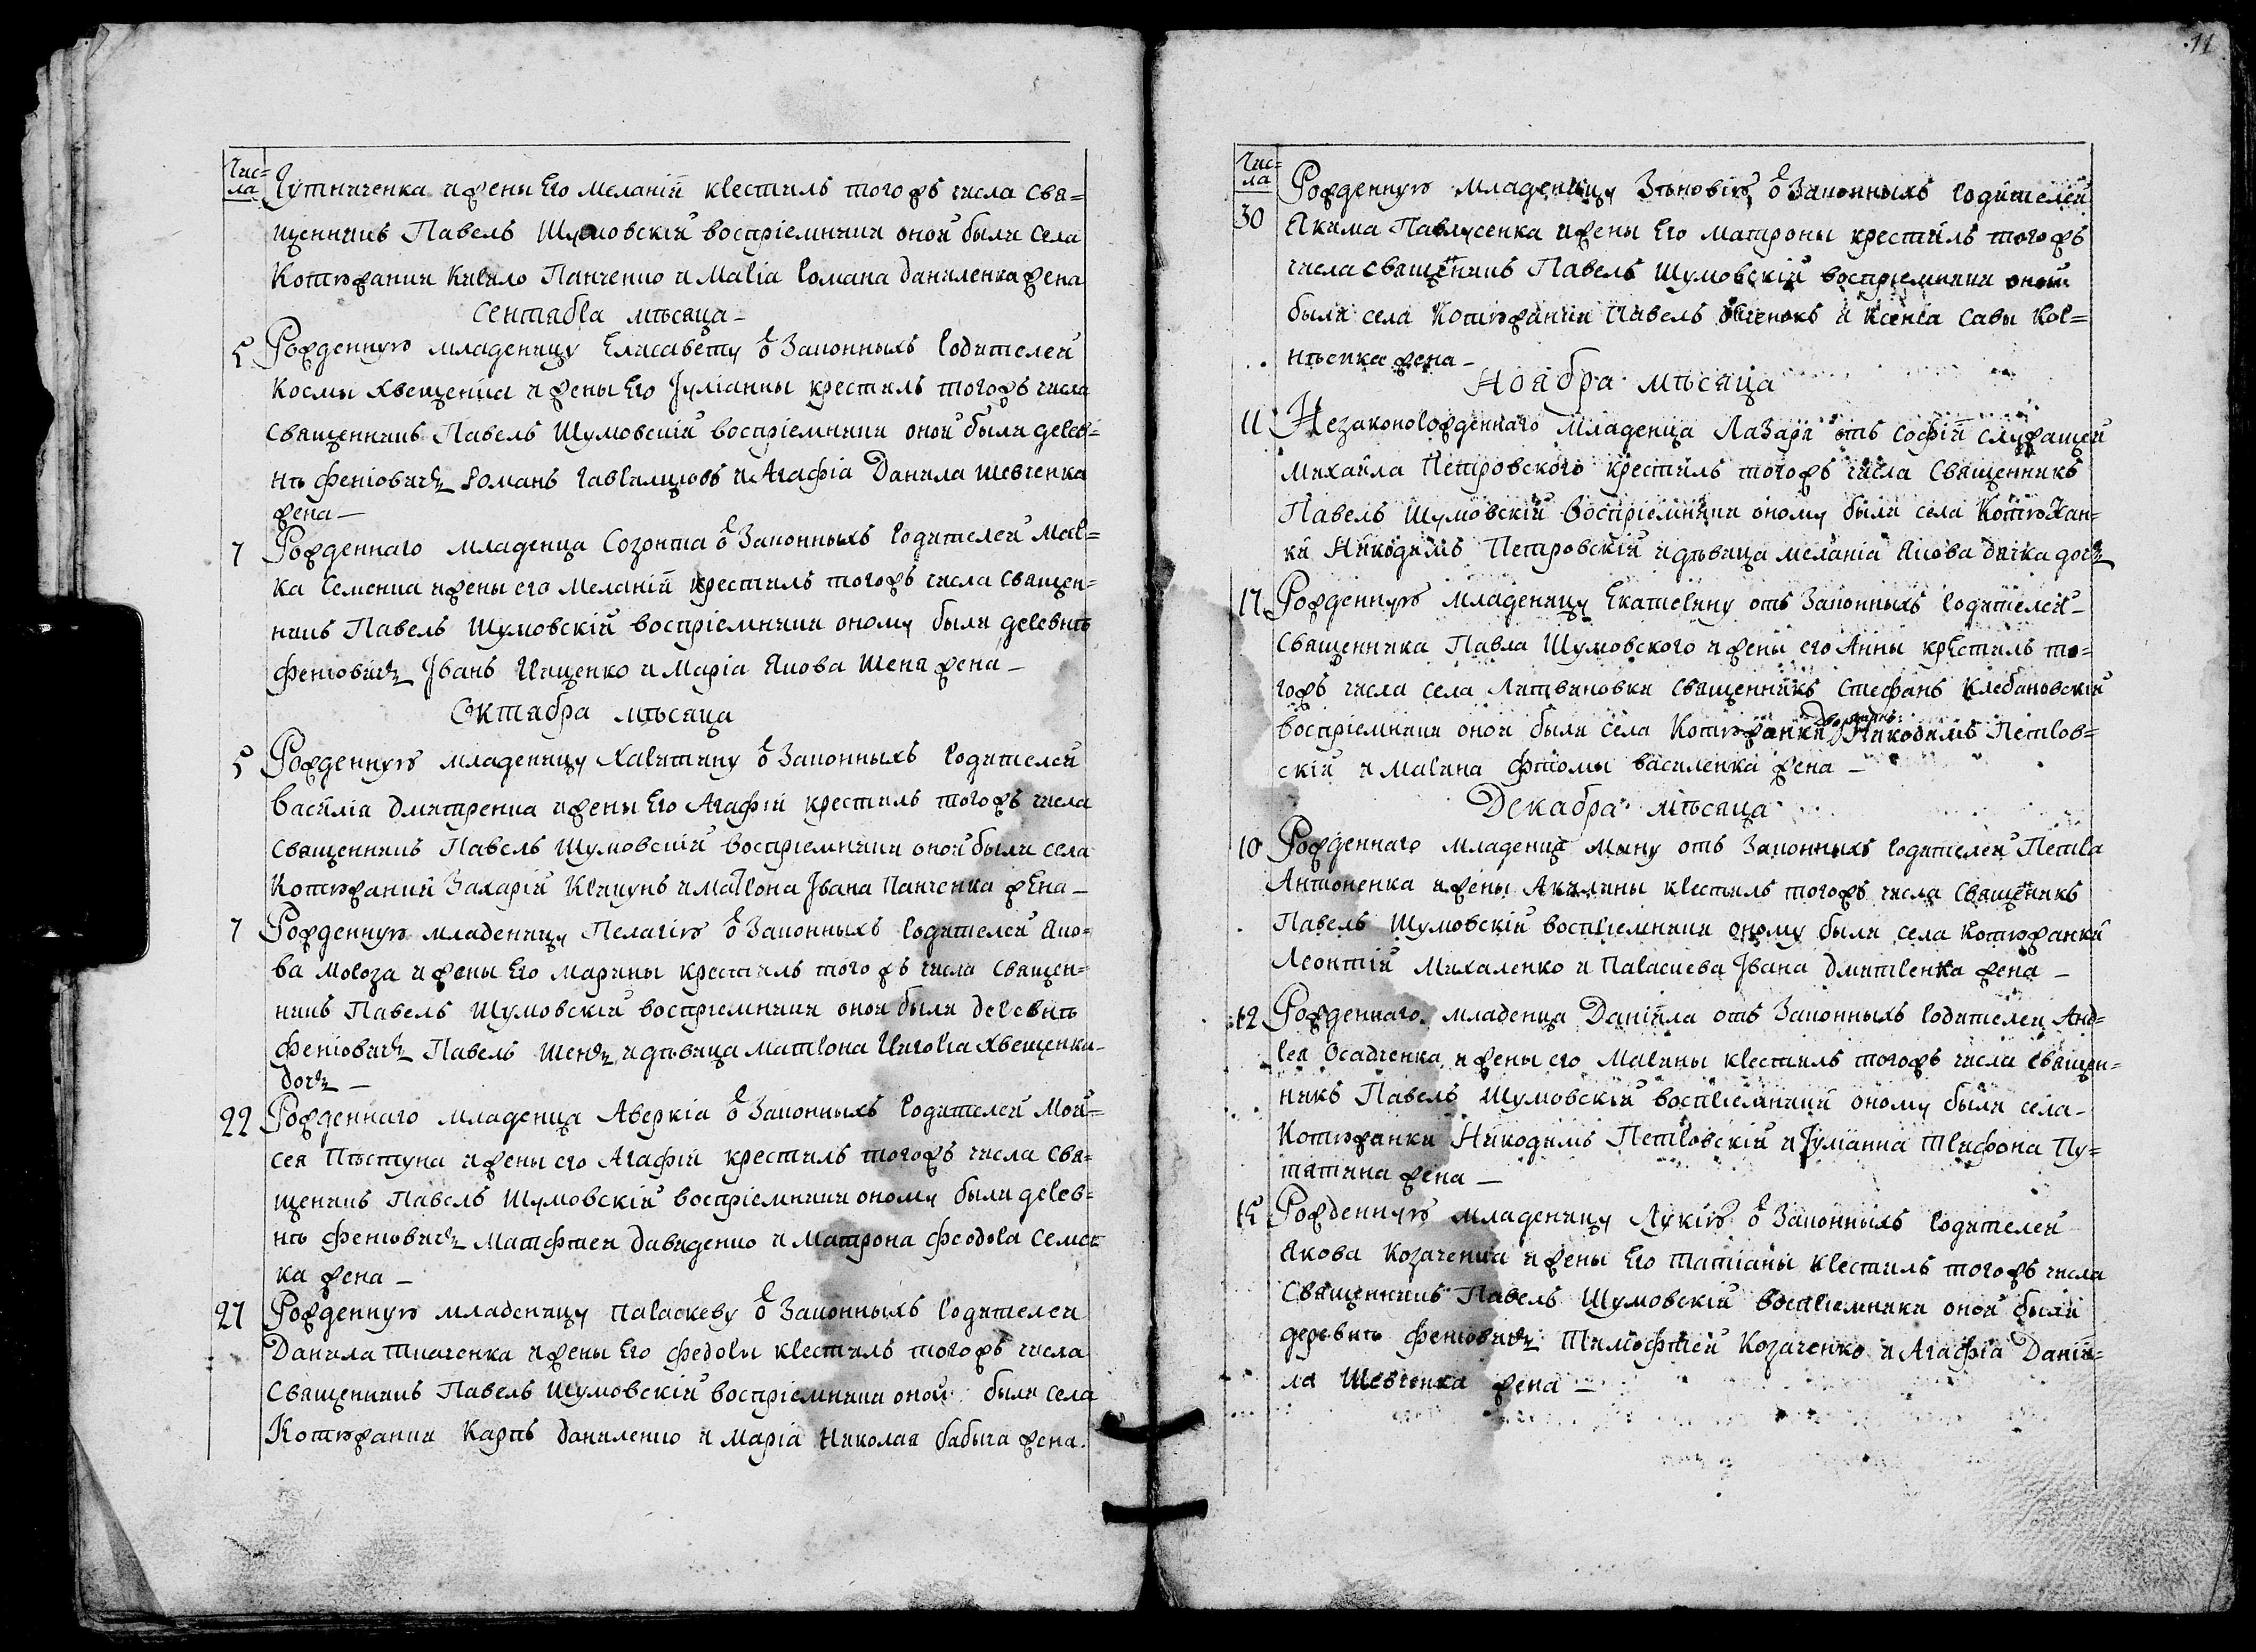 Чис=
ла
Гутниченка и жены Его Меланіи крестилъ тогожъ числа Свя=
щенникъ Павелъ Шумовскій воспріемники оной были села
Котюжанки Кирило Панченко и Марія Романа Даниленка жена
Сентября мѣсяца –
5 Рожденную младеницу Елисавету ѿ Законныхъ Родителей
Космы Хвещенка и жены Его Іуліанны крестилъ тогожъ числа
Священникъ Павелъ Шумовскій воспріемники оной были дерев=
нѣ Феніовичъ Романъ и Агафіа Данила Шевченка
жена –
7 Рожденнаго младенца Созонта ѿ Законныхъ Родителей Мар=
ка Семенка и жены его Меланіи крестилъ тогожъ числа Священ=
никъ Павелъ Шумовскій воспріемники оному были деревнѣ
Феніовичъ Іванъ Ищенко и Марія Якова Шепа жена –
Октября мѣсяца
5 Рожденную младеницу Харитину ѿ Законныхъ Родителей
Василіа Дмитренка и жены Его Агафіи крестилъ тогожъ числа
Священникъ Павелъ Шумовскій воспріемники оной были села
Котюжанки Захарій Крикунъ и Матрона Івана Панченка жЕна –
7 Рожденную младеницу Пелагію ѿ Законныхъ Родителей Яко=
ва Мороза и жены Его Марины крестилъ тогожъ числа Священ=
никъ Павелъ Шумовскій воспріемники оной были деревнѣ
Феніовичъ Павелъ и дѣвица Матрона Игоріа Хвещенка
дочь –
22 Рожденнаго младенца Аверкіа ѿ Законныхъ Родителей Мой=
сея Пѣстуна и жены его Агафіи крестилъ тогожъ числа Свя=
щеникъ Павелъ Шумовскій воспріемники оному были дерев=
нѣ Феніовичъ Матфтей Давиденко и Матрона Феодора Семен
ка жена –
27 Рожденную младеницу Параскеву ѿ Законныхъ Родителей
Данила Ткаченка и жены Его Федоры крестилъ тогожъ числа
Священникъ Павелъ Шумовскій воспріемники оной были села
Котюжанки Карпъ Даниленко и Марія Николая Бабыча жена.
11
Чис=
ла
Рожденную младеницу Зѣновію ѿ Законныхъ Родителей
30 Якима Павлусенка и жены Его Матроны крестилъ тогожъ
числа священикъ Павелъ Шумовскій воспріемники оной
были села Котюжанки Павелъ и Ксенія Савы Кор=
нѣенка жена –
Ноября мѣсяца
11 Незаконорожденнаго младенца Лазаря отъ Софіи служащей
Михайла Петровского крестилъ тогожъ числа Священникъ
Павелъ Шумовскій воспріемники оному были села Котюжан=
ки Никодимъ Петровскій и дѣвица Меланіа Якова Дячка дочь
17 Рожденную младеницу Екатерину отъ Законныхъ Родителей
Священника Павла Шумовского и жены его Анны крЕстилъ то=
гожъ числа села Литвиновки священникъ Стефанъ Клебановскій
воспріемники оной были села Котюжанки дворянинъ Никодимъ Петров=
скій и Марина Фтомы Василенка жена –
Декабря мѣсяца
10 Рожденнаго младенца Мину отъ Законныхъ Родителей Петра
Антоненка и жены Акилины крестилъ тогожъ числа Священикъ
Павелъ Шумовскій воспріемники оному были села Котюжанки
Леонтій Михаленко и Параскева Івана Дмитренка жена –
12 Рожденнаго младенца Даніила отъ Законныхъ Родителей Анд=
рея Осадченка и жены его Марины крестилъ тогожъ числа Священ=
никъ Павелъ Шумовскій воспріемники оному были села
Котюжанки Никодимъ Петровскій и Іулианна Трифона Пу=
тятина жена –
15 Рожденную младеницу Лукію ѿ Законныхъ Родителей
Якова Козаченка и жены Его Татіаны крестилъ тогожъ числа
Священникъ Павелъ Шумовскій воспріемники оной были
деревнѣ Феніовичъ Тимофтей Козаченко и Агафіа Даніи=
ла Шевченка жена –